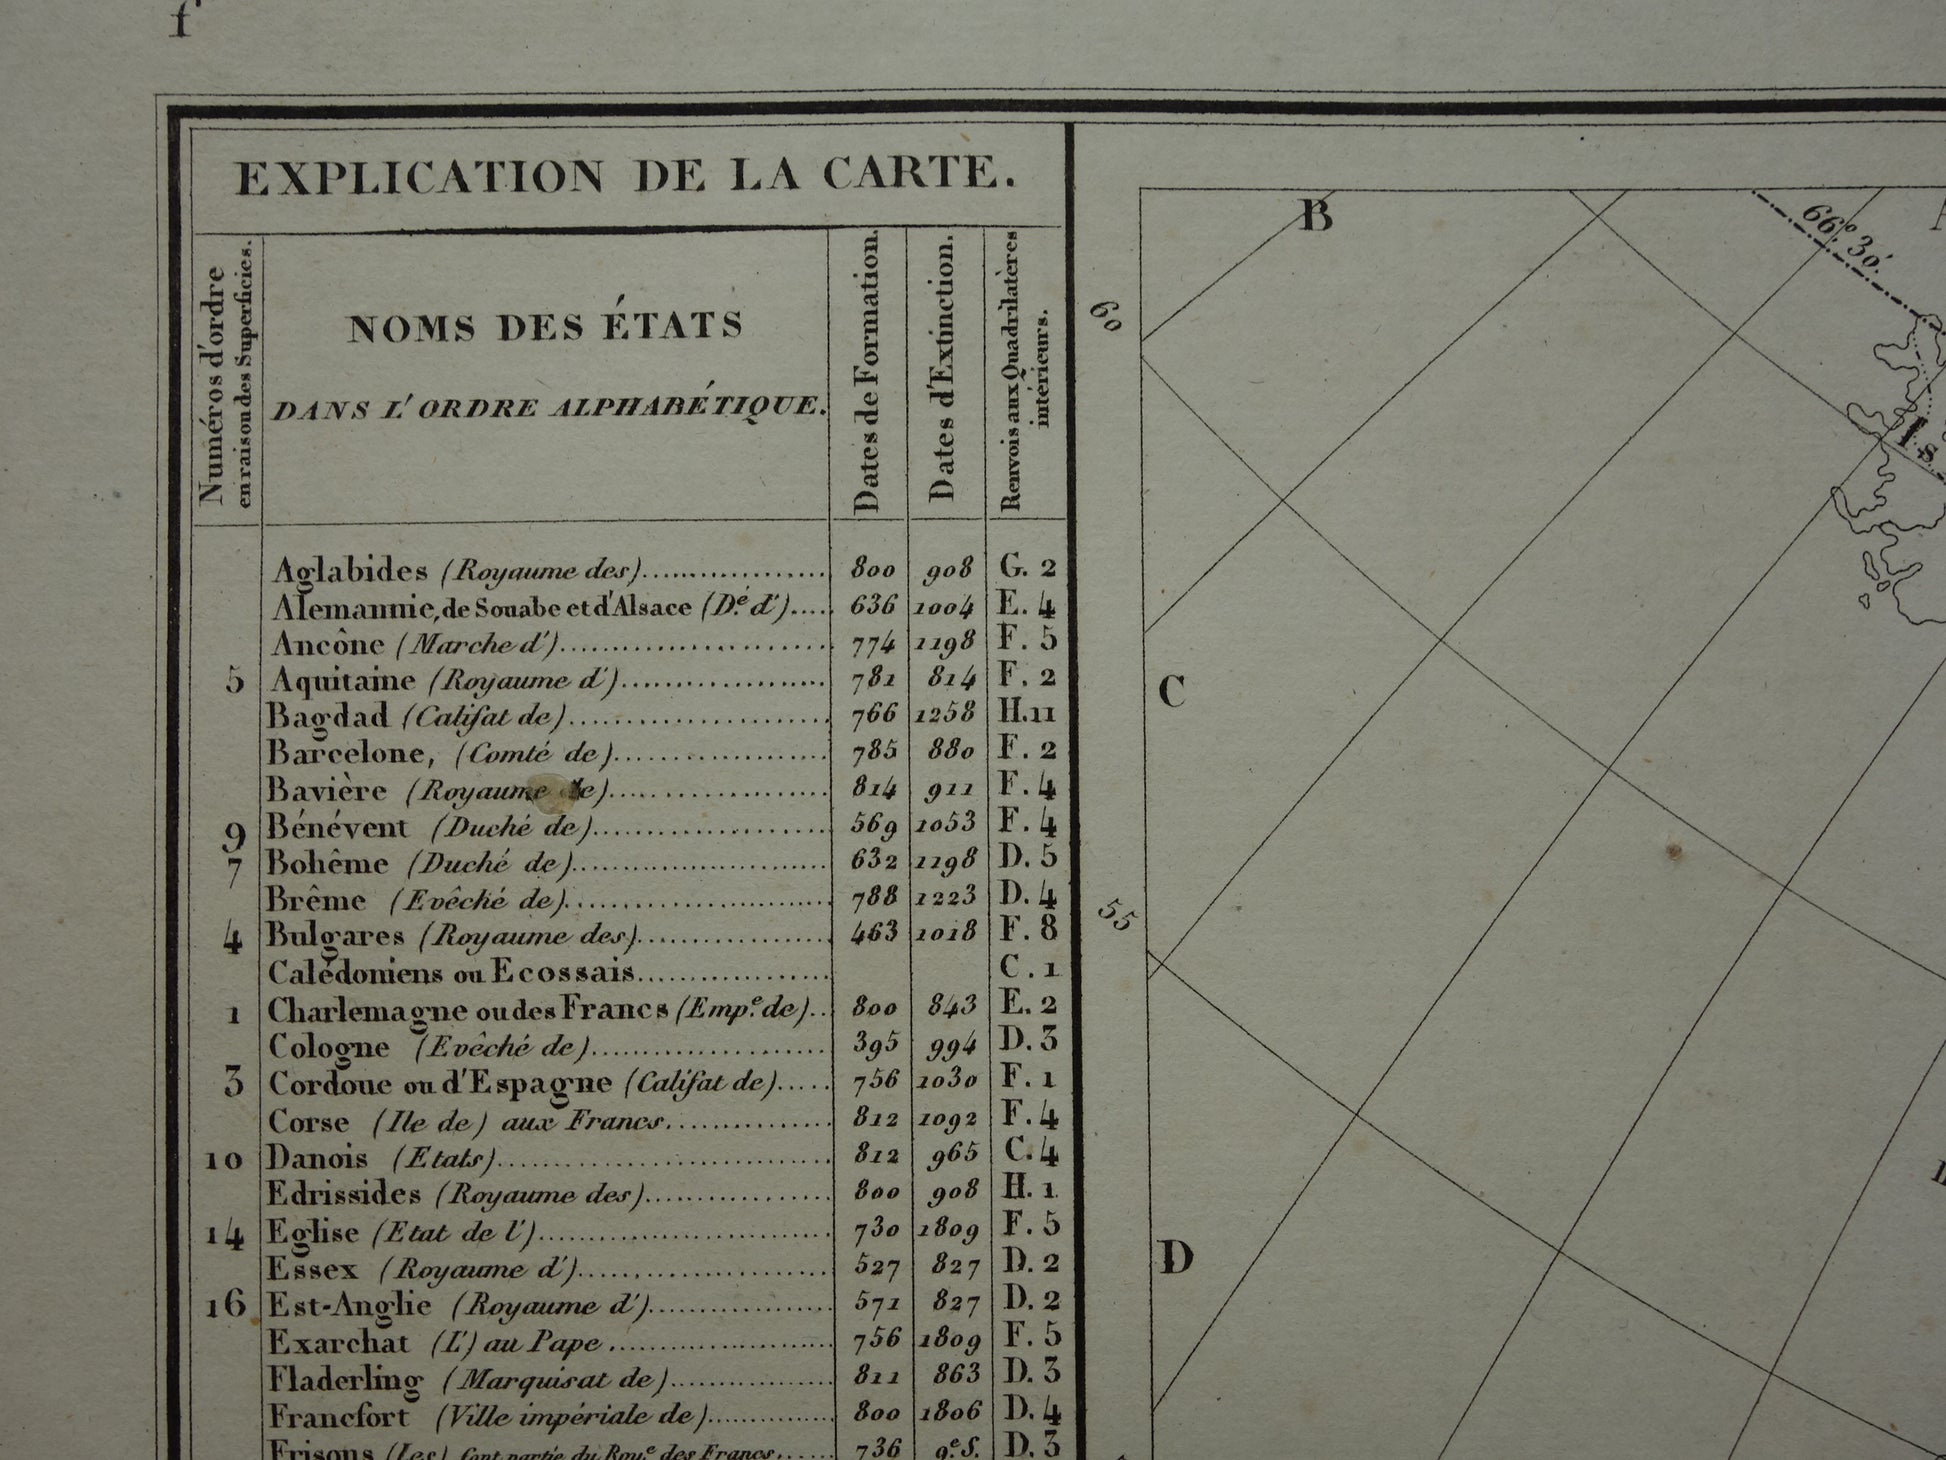 f
EXPLICATION DE LA CARTE.
Numéros d'ordre
en raison des Superficies.
NOMS DES ÉTATS
DANS L'ORDRE ALPHABÉTIQUE.
Dates de Formation.
Dates d'Extinction.
Renvois aux Quadrilatères
intérieurs.
Aglabides (Royaume des) 800 908 G. 2
Alemannie, de Souabe et d'Alsace (D.é d') 636 1004 E. 4
Ancône (Marche d') 774 1198 F. 5
5 Aquitaine (Royaume d') 781 814 F. 2
Bagdad (Califat de) 766 1258 H. 11
Barcelone, (Comté de) 785 880 F. 2
Bavière (Royaume de) 814 911 F. 4
9 Bénévent (Duché de) 569 1053 F. 4
7 Bohême (Duché de) 632 1198 D. 5
Brême (Evêché de) 788 1223 D. 4
4 Bulgares (Royaume des) 463 1018 F. 8
Calédoniens ou Ecossais C. 1
1 Charlemagne ou des Francs (Emp.e de) 800 843 E. 2
Cologne (Evêché de) 395 994 D. 3
3 Cordoue ou d'Espagne (Califat de) 756 1030 F. 1
Corse (Ile de) aux Francs 812 1092 F. 4
10 Danois (Etats) 812 965 C. 4
Edrissides (Royaume des) 800 908 H. 1
14 Eglise (Etat de l') 730 1809 F. 5
Essex (Royaume d') 527 827 D. 2
16 Est-Anglie (Royaume d') 571 827 D. 2
Exarchat (L') au Pape 756 1809 F. 5
Fladerling (Marquisat de) 811 863 D. 3
Francfort (Ville impériale de) 800 1806 D. 4
Frisons (Les) font partie du Roy.e des Francs 736 9.e S. D. 3
B
66° 30'
60
Is
C
55
D